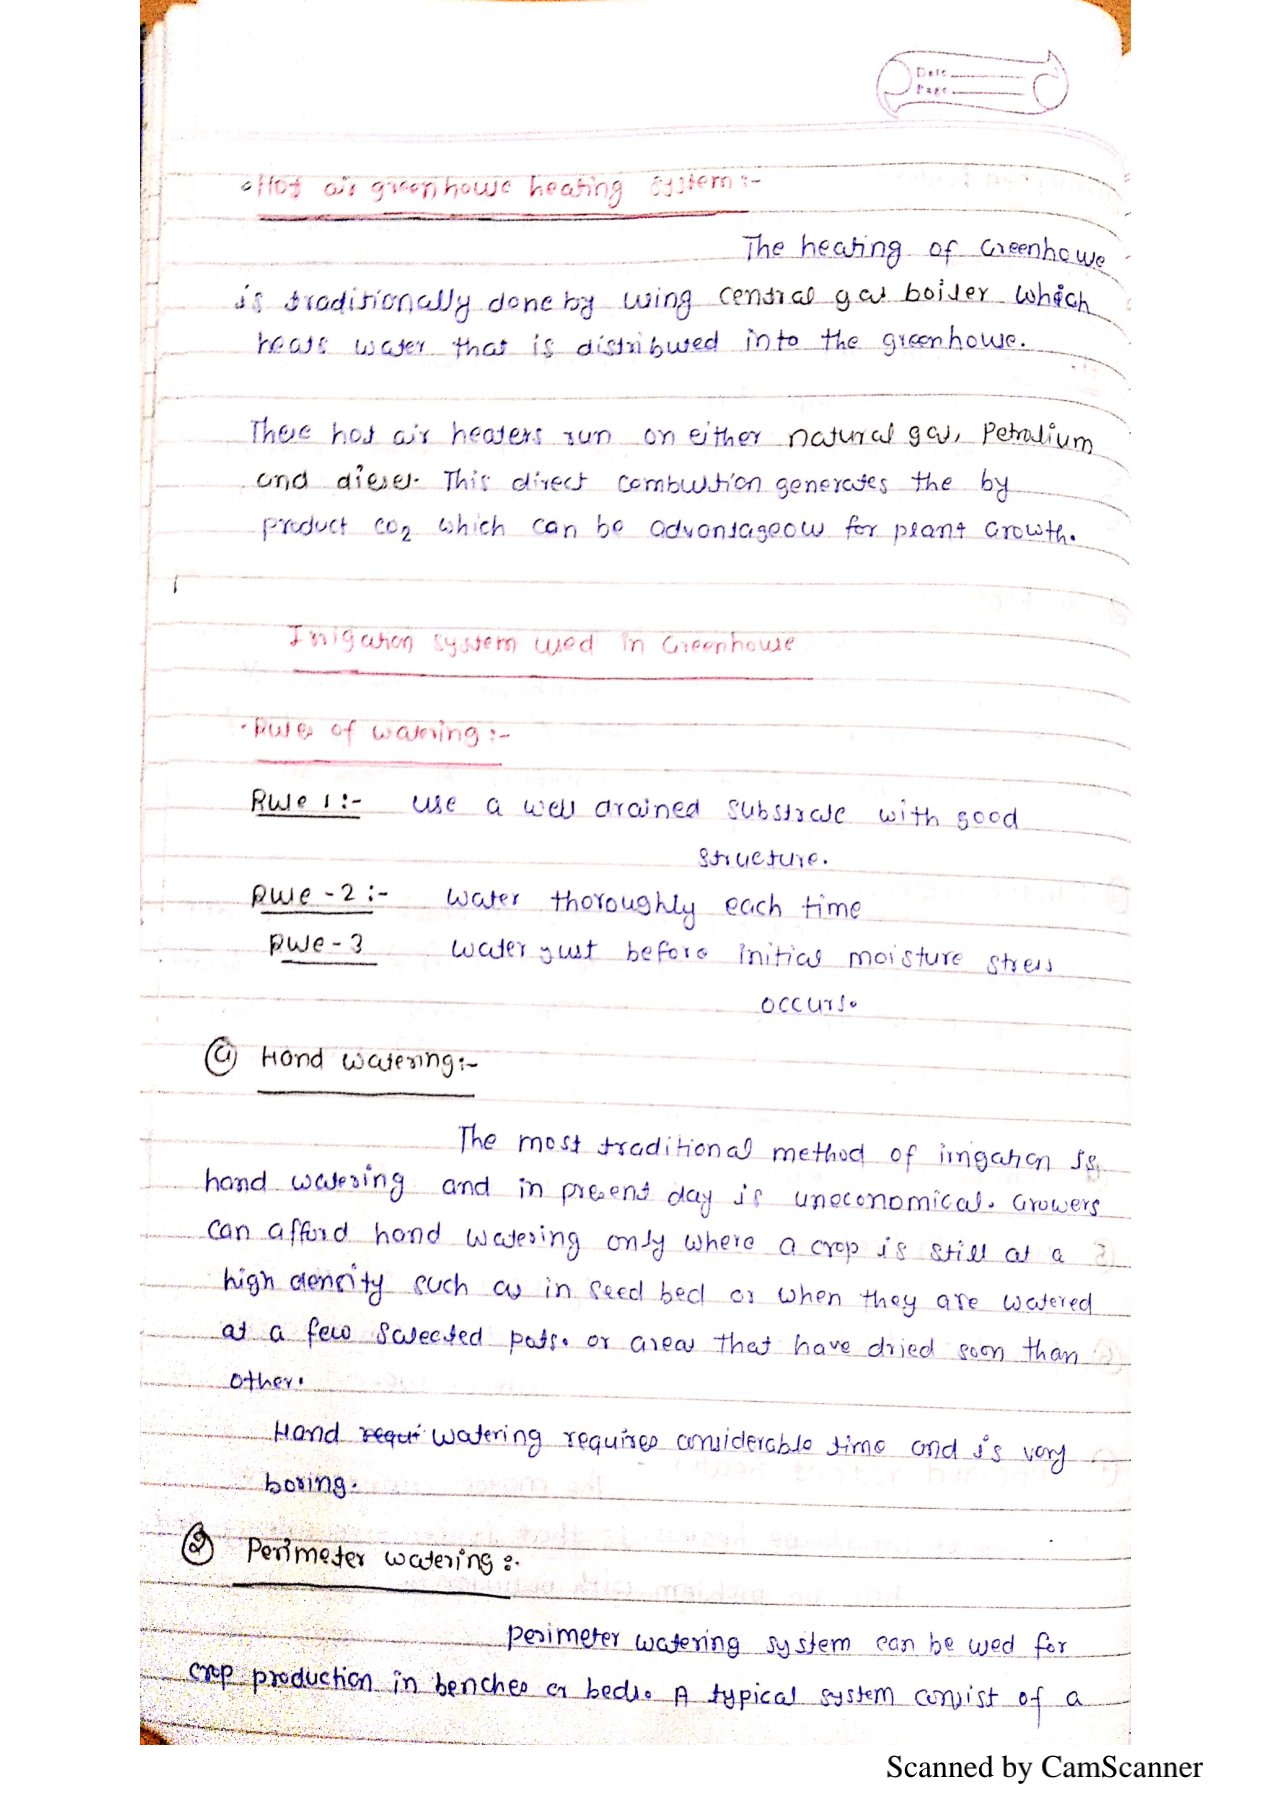 Date
Page
Hot air greenhouse heating system:-
The heating of Greenhouse
is traditionally done by using central gas boiler which
heats water that is distributed into the greenhouse.
These hot air heaters run on either natural gas, Petralium
and diesel. This direct combustion generates the by
product CO2 which can be advantageous for plant Growth.
Irrigation system used in Greenhouse
Rules of watering:-
Rule 1:- use a well drained substrate with good
structure.
Rule-2:- water thoroughly each time
Rule-3 water just before initial moisture stress
occurs.
Hand watering:-
The most traditional method of irrigation is
hand watering and in present day is uneconomical. Growers
can afford hand watering only where a crop is still at a
high density such as in seed bed or when they are watered
at a few salected pots. or areas that have dried soon than
other.
Hand requi watering requires considerable time and is very
boring.
② Perimeter watering:-
Perimeter watering system can be used for
crop production in benches or beds. A typical system consist of a
Scanned by CamScanner